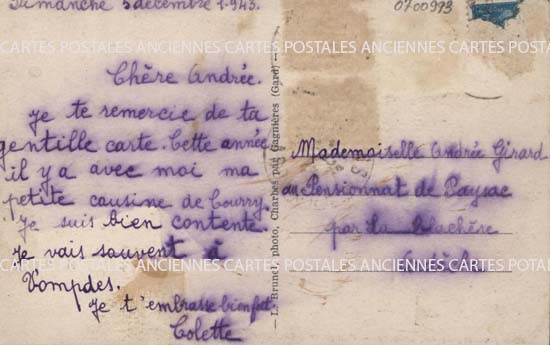 Dimanche 5 décembre 1943.
0700993
Chère Andrée.
Je te remercie de ta
gentille carte. Cette année
il y a avec moi ma
petite cousine de Courry.
Je suis bien contente.
Je vais souvent à
Pompdes.
Je t'embrasse bien fort.
Colette
— L. Brunel, photo, Charbes par Gagnières (Gard) —
Mademoiselle Andrée Girard
au Pensionnat de Paysac
par La
CARTES POSTALES ANCIENNES CARTES POSTALES ANCIENNES CARTES POSTALES
CARTES POSTALES ANCIENNES CARTES POSTALES ANCIENNES CARTES POSTALES